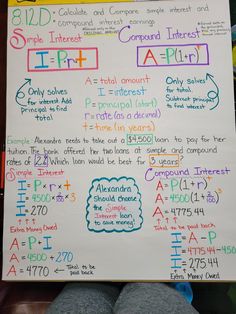 8.12D: Calculate and Compare simple interest and
compound interest earnings
Simple Interest
Compound Interest
I = P·r·t
A = P(1+r)ᵗ
Only solves
for interest. Add
principal to find
total
A = total amount
I = interest
P = principal (start)
r = rate (as a decimal)
t = time (in years)
Only solves
for total.
Subtract principal
to find
interest
Example: Alexandra needs to take out a $4,500 loan to pay for her
tuition. The bank offered her two loans at simple and compound
rates of 2%. Which loan would be best for 3 years?
Simple Interest
Compound Interest
I = P·r·t
I = 4500·2/100·3
I = 270
Extra Money Owed
A = P + I
A = 4500 + 270
A = 4770 ← Total to be
paid back
Alexandra
should choose
the Simple
Interest loan
to save money!
A = P(1+r)ᵗ
A = 4500(1+2/100)³
A = 4775.44
Total to be paid back
I = A - P
I = 4775.44 - 4500
I = 275.44
Extra Money Owed